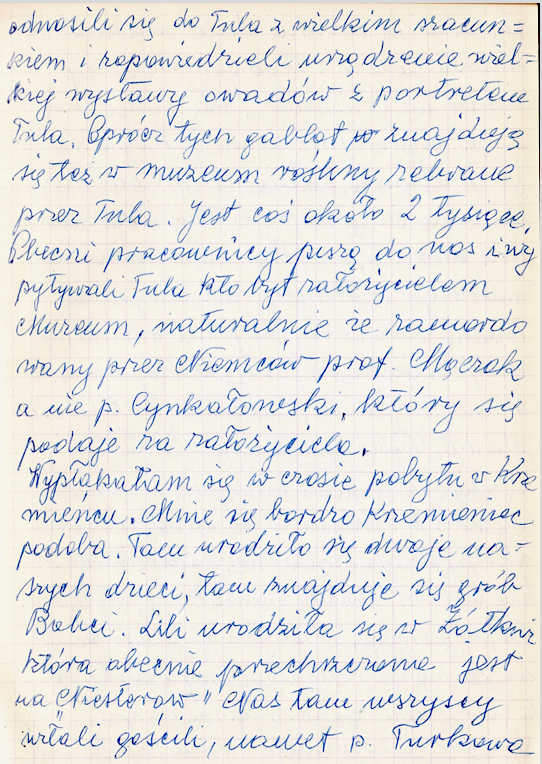 odnosili się do Tula z wielkim szacun=
kiem i zapowiedzieli urządzenie wiel=
kiej wystawy owadów z portretem
Tula. Oprócz tych gablot znajdują
się też w muzeum rośliny zebrane
przez Tula. Jest coś około 2 tysięcy.
Obecni pracownicy piszą do nas i wy
pytywali Tula kto był założycielem
Muzeum, naturalnie że zamordo
wany przez Niemców prof. Mączak
a nie p. Cynkałowski, który się
podaje za założyciela.
Wypłakałam się w czasie pobytu w Krze
mieńcu. Mnie się bardzo Krzemieniec
podoba. Tam urodziło się dwoje na-
szych dzieci, tam znajduje się grób
Babci. Lili urodziła się w Żółkwi
która obecnie przechrzczona jest
na "Niesterow" Nas tam wszyscy
witali gościli, nawet p. Turkowa